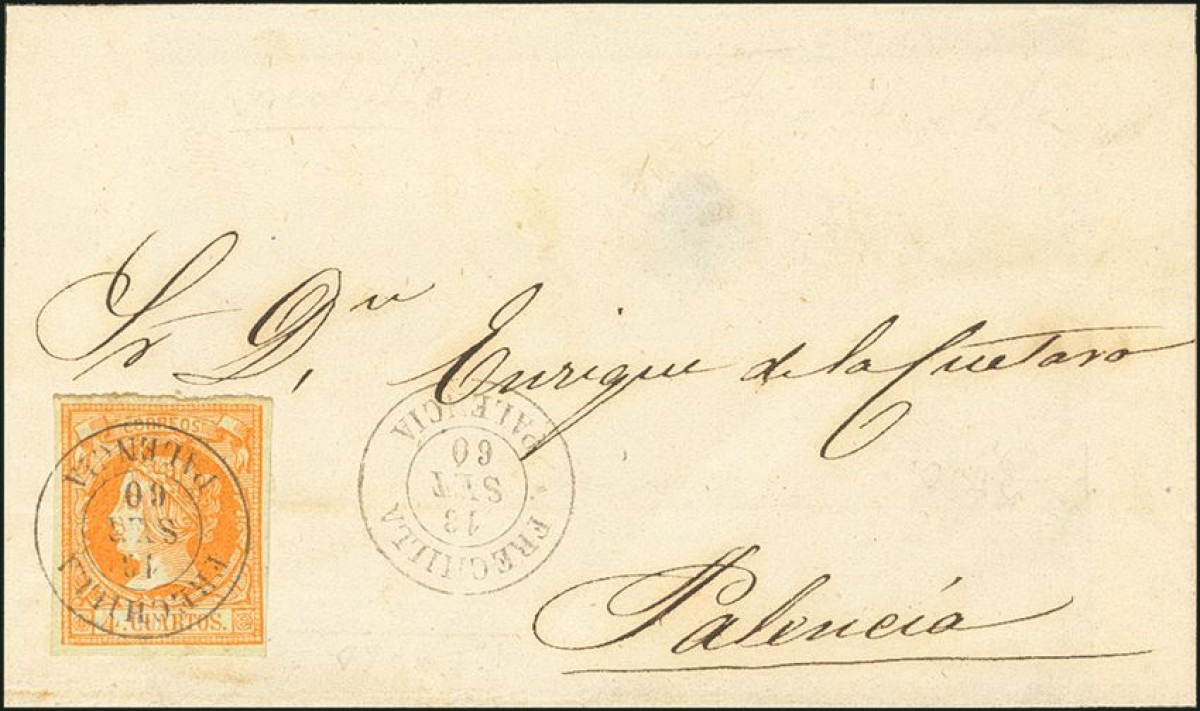 Sr Dn, Enrique de la Cuetara
CORREOS
4 CUARTOS.
FRECHILLA
13
SET
60
PALENCIA
FRECHILLA
13
SET
60
PALENCIA
Palencia